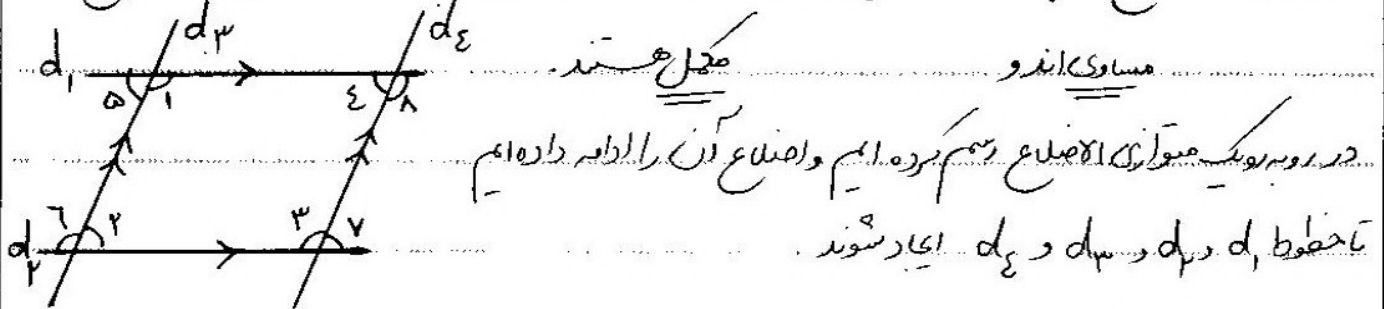 d₁ d₃ d₄
۵ ۱ ۴ ۸
مساوی‌اند و مکمل هستند.
در روبه‌رو یک متوازی‌الاضلاع رسم کرده‌ایم و اضلاع آن را ادامه داده‌ایم
d₂ ۶ ۲ ۳ ۷
تا خطوط d₁ و d₂ و d₃ و d₄ ایجاد شوند.